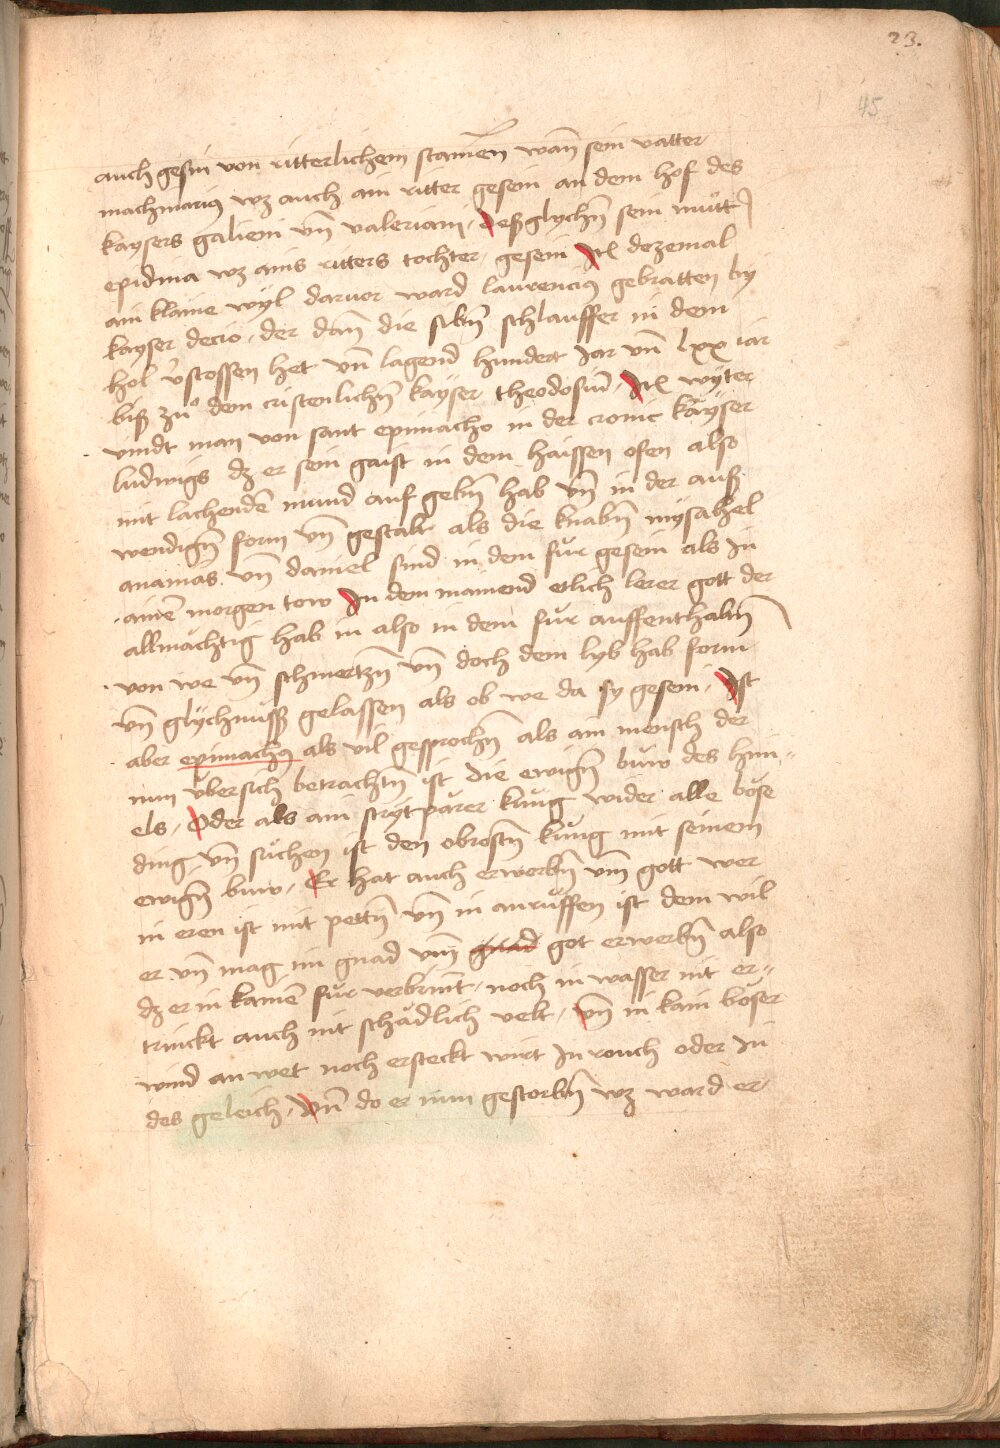 23.
45
auch gesin von ritterlichem stamen wan̄ sein vatter
machmariꝯ wz auch ain ritter gesein an dem hof des
kaysers galieni vn̄ valeriani, Deßglychn̄ sein mutt
epidina wz ains ritters tochter gesein Itl dezemal
ain klaine wyl darvor ward laurenciꝯ gebratten by
kayser decio, der dan̄ die sibn̄ schlauffer in dem
hol v̓stossen het vn̄ lagend hundert Jar vn̄ lxx iar
biß zuͦ dem cristenlichn̄ kayser theodosiū, Itl wyter
vindt man von sant epimacho in der cronic kayser
ludwigs dz er sein gaist in dem haissen ofen also
mit lachendē mund auf gebn̄ hab vn̄ in der auß
wendign̄ form vn̄ gestalt als die knabn̄ mysahel
ananias vn̄ daniel sind in dem fuͤr gesein als in
ainē morgen tow In dem mainend etlich lerer gott der
allmächtig hab in also in dem fuͤr auffenthaltn̄
von we vn̄ schmertzn̄ vn̄ doch dem lyb hab form
vn̄ glychnuͤß gelassen als ob we da sy gesein, Ist
aber epimachꝯ als vil gesprochn̄ als ain mensch der
nun uͤbersich betrachtn̄ ist die ewign̄ buw des him-
els, Oder als ain strytparer kuͤng wider alle boͤse
ding, vn̄ suͤchen ist den obrostn̄ kuͤng mit seinem
ewign̄ buw, Er hat auch erwerbn̄ vm̄ gott wer
in eren ist mit pettn̄ vn̄ in anruͤffen ist dem wil
er vn̄ mag im gnad vm̄ gnad got erwerbn̄ also
dz er in kainē fuͤr verbrint, noch in wasser nit er-
trinckt auch nit schädlich velt, vn̄ in kain boͤser
wind an wet noch ersteckt wirt In rouch oder In
des geleich, Vn̄ do er nun gestorbn̄ wz ward er